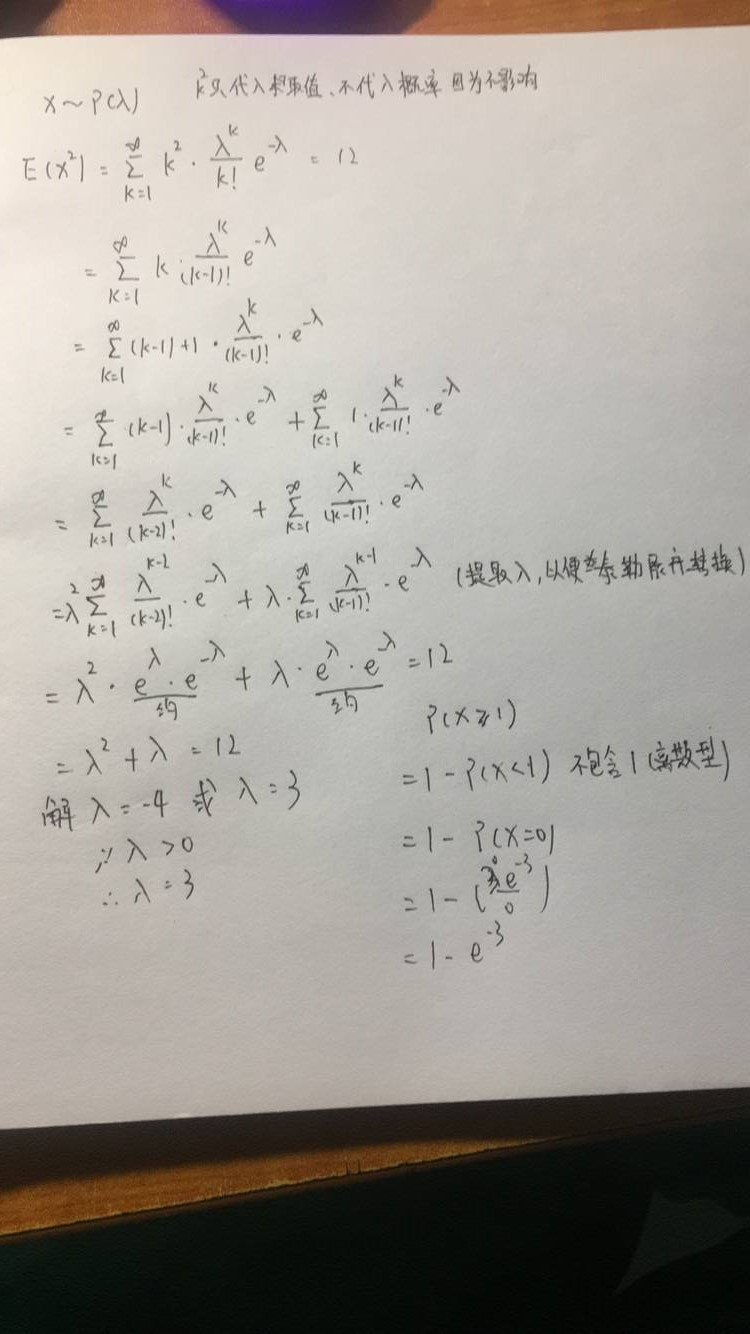 X ~ P(λ) k² 只代入取值、不代入概率 因为不影响
E(x²) = ∑_{k=1}^{∞} k² · \frac{λ^k}{k!} e^{-λ} = 12
= ∑_{k=1}^{∞} k · \frac{λ^k}{(k-1)!} e^{-λ}
= ∑_{k=1}^{∞} (k-1)+1 · \frac{λ^k}{(k-1)!} · e^{-λ}
= ∑_{k=1}^{∞} (k-1) · \frac{λ^k}{(k-1)!} · e^{-λ} + ∑_{k=1}^{∞} 1 · \frac{λ^k}{(k-1)!} · e^{-λ}
= ∑_{k=1}^{∞} \frac{λ^k}{(k-2)!} · e^{-λ} + ∑_{k=1}^{∞} \frac{λ^k}{(k-1)!} · e^{-λ}
= λ² ∑_{k=1}^{∞} \frac{λ^{k-2}}{(k-2)!} · e^{-λ} + λ · ∑_{k=1}^{∞} \frac{λ^{k-1}}{(k-1)!} · e^{-λ} (提取λ,以便泰勒展开转换)
= λ² · e^{λ} · e^{-λ} + λ · e^{λ} · e^{-λ} = 12
约 约
= λ² + λ = 12
解 λ = -4 或 λ = 3
∵ λ > 0
∴ λ = 3
P(X ≥ 1)
= 1 - P(X < 1) 不包含1 (离散型)
= 1 - P(X=0)
= 1 - (\frac{3^0 e^{-3}}{0})
= 1 - e^{-3}